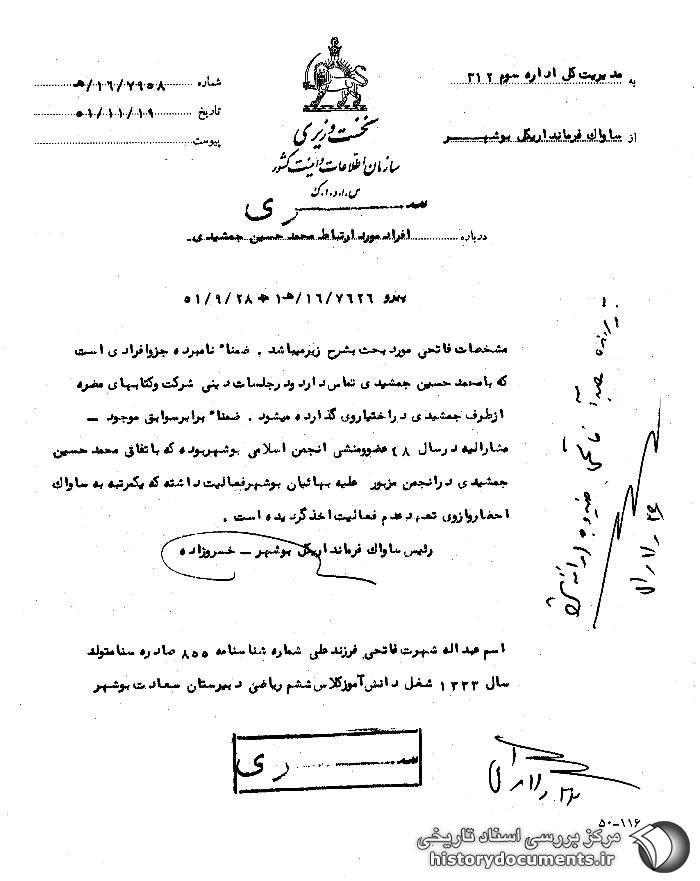 به مدیریت کل اداره سوم ۳۱۲
از ساواک فرمانداریکل بوشهر
شماره ۱۶/۷۹۵۸/ه
تاریخ ۵۱/۱۱/۱۹
پیوست
نخست وزیری
سازمان اطلاعات و امنیت کشور
س.ا.و.ا.ک
سری
درباره افراد مورد ارتباط محمد حسین جمشیدی-
پیرو ۱۶/۷۶۲۶/ه۱ - ۵۱/۹/۲۸
مشخصات فاتحی مورد بحث بشرح زیرمیباشد . ضمناً نامبرده جزوافرادی است
که بامحمد حسین جمشیدی تماس دارد ودرجلسات دینی شرکت وکتابهای مضره
ازطرف جمشیدی دراختیاروی گذارده میشود . ضمناً برابرسوابق موجود -
مشارالیه درسال ۴۸ عضوومنشی انجمن اسلامی بوشهربوده که باتفاق محمد حسین
جمشیدی درانجمن مزبور علیه بهائیان بوشهرفعالیت داشته که یکمرتبه به ساواک
احضاروازوی تعهد عدم فعالیت اخذگردیده است .
رئیس ساواک فرمانداریکل بوشهر - خسروزاده
اسم عبداله شهرت فاتحی فرزندعلی شماره شناسنامه ۸۵۵ صادره سنامتولد
سال ۱۳۳۳ شغل دانش آموزکلاس ششم ریاضی دبیرستان سعادت بوشهر
سری
۵۰-۱۱۶
مرکز بررسی اسناد تاریخی
historydocuments.ir